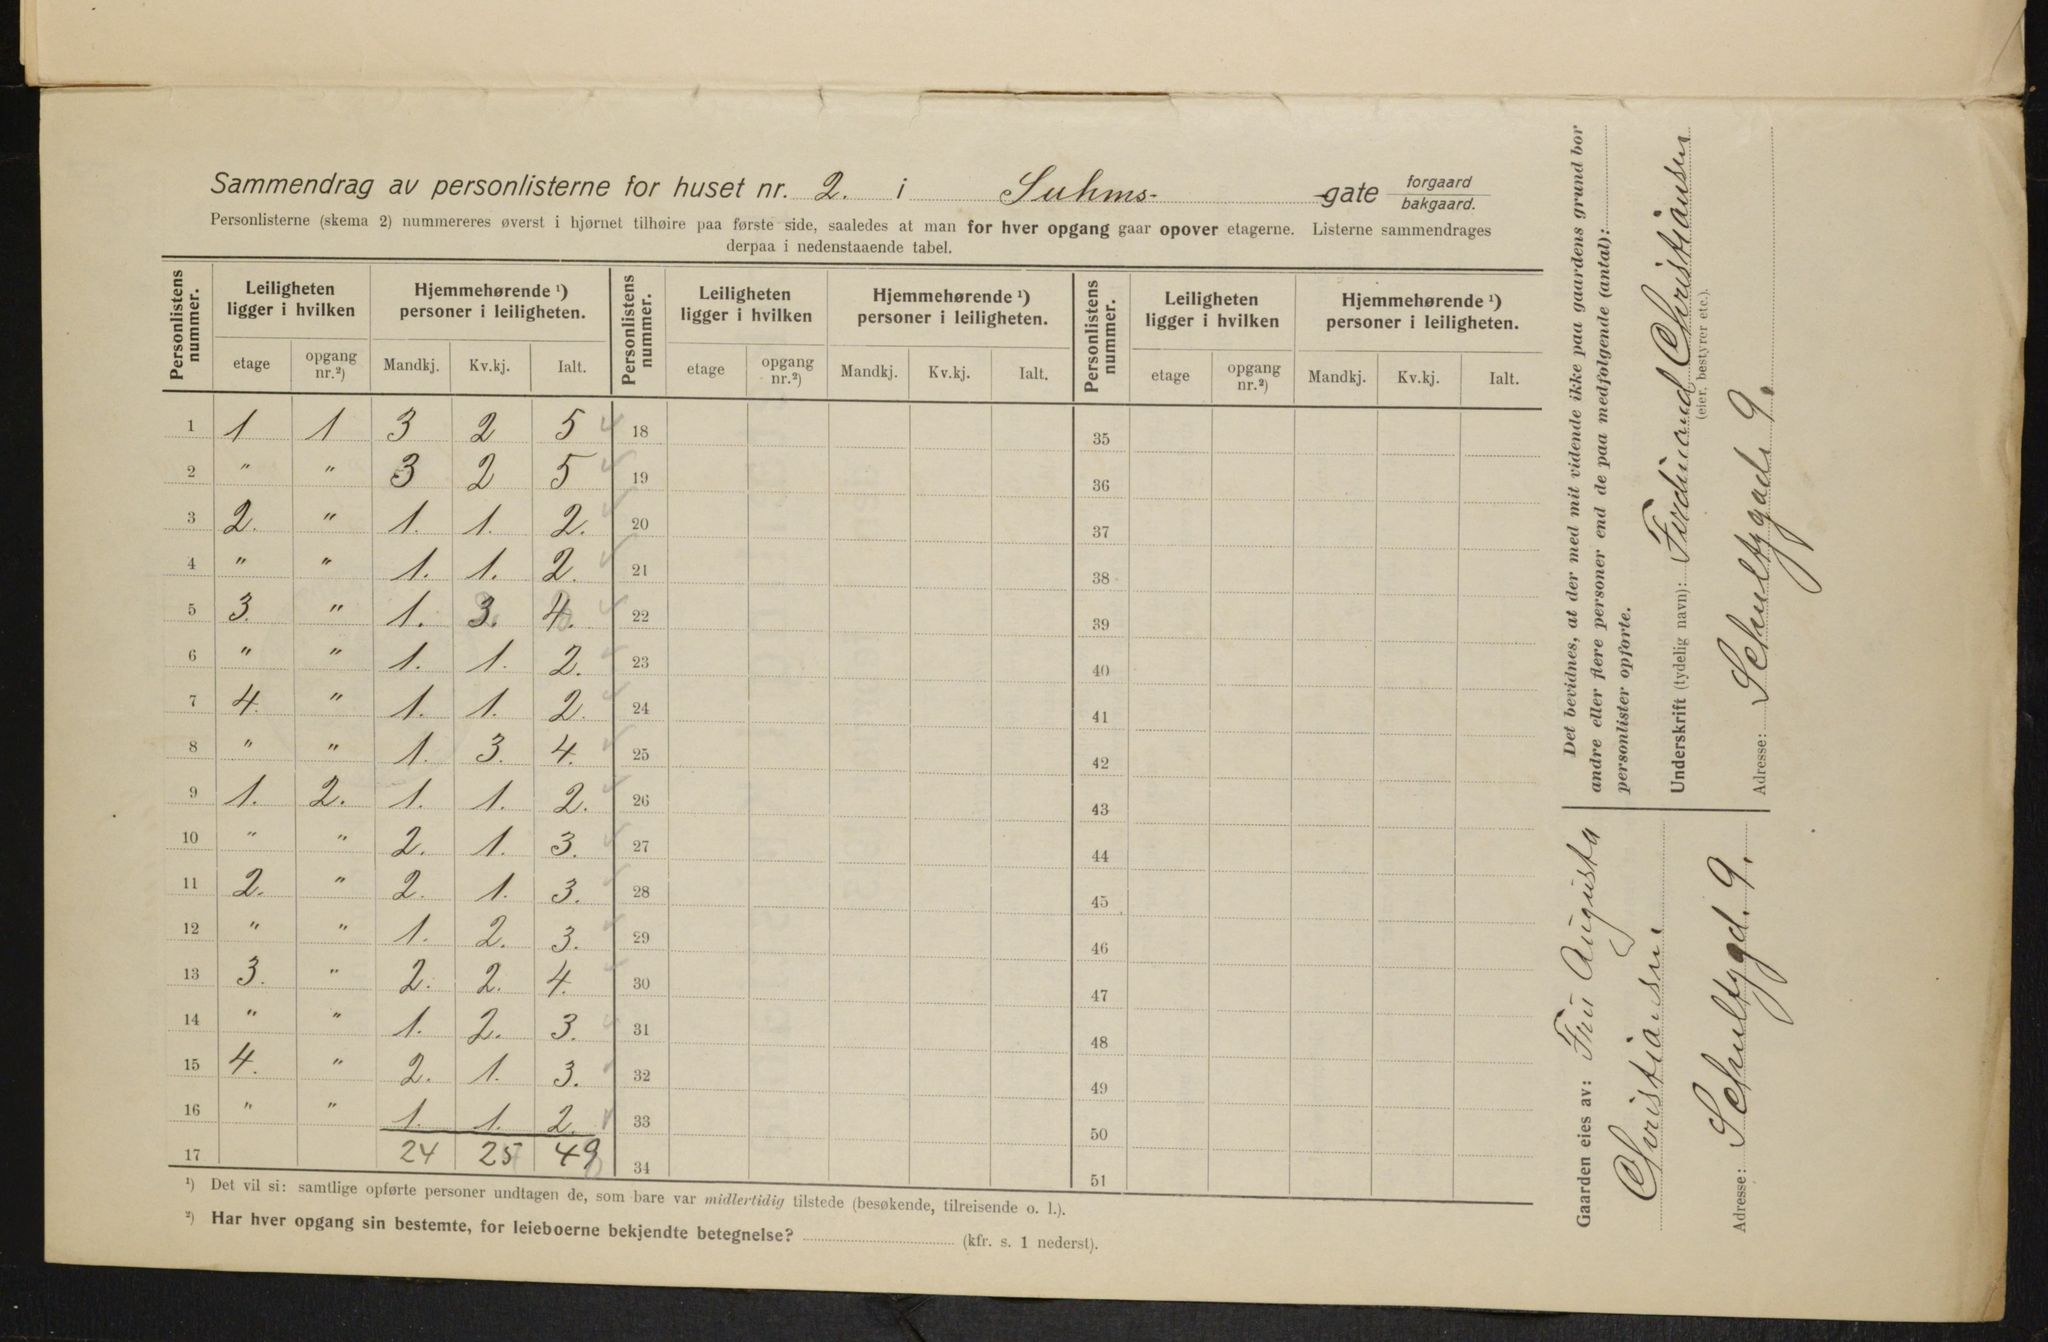 Sammendrag av personlisterne for huset nr. 2. i Suhms- gate forgaard
bakgaard.
Personlisterne (skema 2) nummereres øverst i hjørnet tilhøire paa første side, saaledes at man for hver opgang gaar opover etagerne. Listerne sammendrages
derpaa i nedenstaaende tabel.
Personlistens nummer. Leiligheten ligger i hvilken Hjemmehørende ¹) personer i leiligheten. Personlistens nummer. Leiligheten ligger i hvilken Hjemmehørende ¹) personer i leiligheten. Personlistens nummer. Leiligheten ligger i hvilken Hjemmehørende ¹) personer i leiligheten.
etage opgang nr.²) Mandkj. Kv.kj. Ialt. etage opgang nr.²) Mandkj. Kv.kj. Ialt. etage opgang nr.²) Mandkj. Kv.kj. Ialt.
1 1 1 3 2 5 18 35
2 " " 3 2 5 19 36
3 2. " 1. 1. 2. 20 37
4 " " 1. 1. 2. 21 38
5 3. " 1. 3. 4. 22 39
6 " " 1. 1. 2. 23 40
7 4. " 1. 1. 2. 24 41
8 " " 1. 3. 4. 25 42
9 1. 2. 1. 1. 2. 26 43
10 " " 2. 1. 3. 27 44
11 2. " 2. 1. 3. 28 45
12 " " 1. 2. 3. 29 46
13 3. " 2. 2. 4. 30 47
14 " " 1. 2. 3. 31 48
15 4. " 2. 1. 3. 32 49
16 " " 1. 1. 2. 33 50
17 24 25 49 34 51
¹) Det vil si: samtlige opførte personer undtagen de, som bare var midlertidig tilstede (besøkende, tilreisende o. l.).
²) Har hver opgang sin bestemte, for leieboerne bekjendte betegnelse? (kfr. s. 1 nederst).
Det bevidnes, at der med mit vidende ikke paa gaardens grund bor
andre eller flere personer end de paa medfølgende (antal):
personlister opførte.
Underskrift (tydelig navn): Ferdinand Christiansen
(eier, bestyrer etc.).
Adresse: Schultzgade 9.
Gaarden eies av: Fru Augusta
Christiansen.
Adresse: Schultzgd. 9.